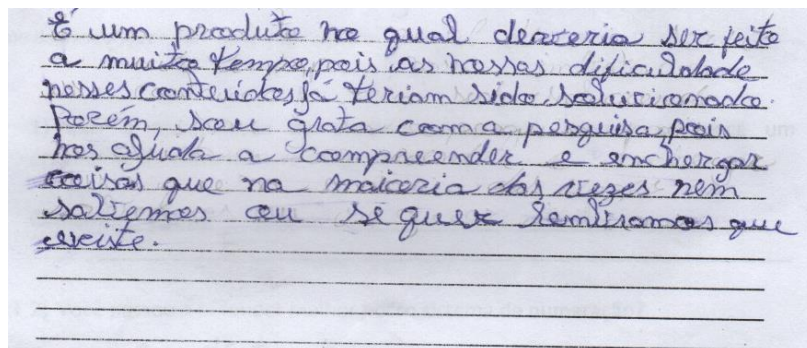 É um produto no qual deveria ser feito
a muito tempo, pois as nossas dificuldade
nesses conteúdos já teriam sido solucionado.
Porém, sou grata com a pesquisa, pois
nos ajuda a compreender e enchergar
coisas que na maioria das vezes nem
sabemos ou se quer lembramos que
existe.